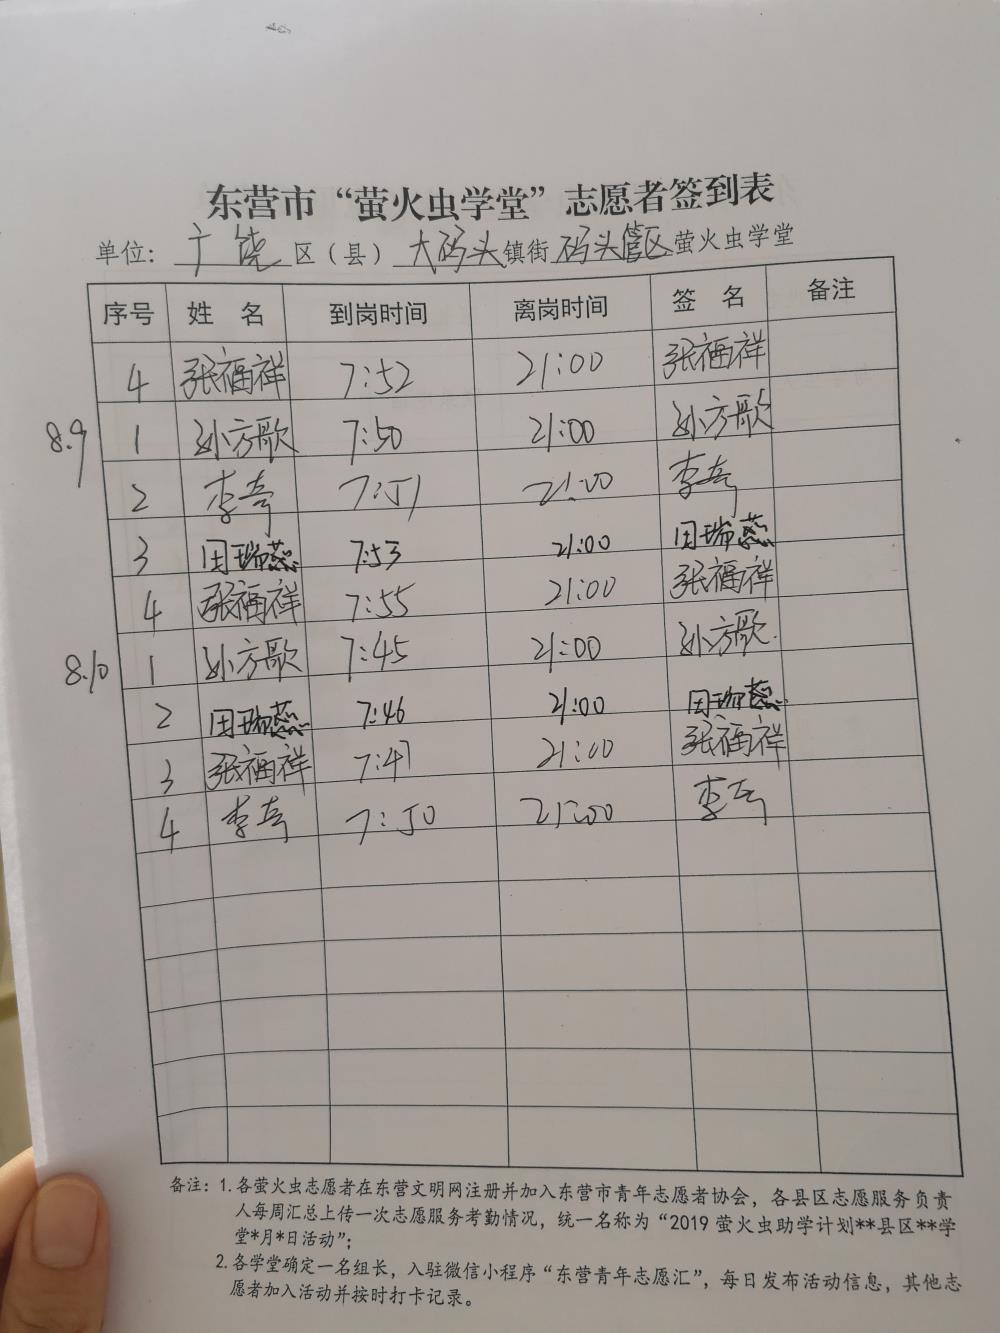 东营市“萤火虫学堂”志愿者签到表
单位：广饶区（县）大码头镇街码头管区萤火虫学堂
序号 姓 名 到岗时间 离岗时间 签 名 备注
4 张福祥 7:52 21:00 张福祥
8.9 1 孙方歌 7:50 21:00 孙方歌
2 李奇 7:51 21:00 李奇
3 田瑞蕊 7:53 21:00 田瑞蕊
4 张福祥 7:55 21:00 张福祥
8.10 1 孙方歌 7:45 21:00 孙方歌
2 田瑞蕊 7:46 21:00 田瑞蕊
3 张福祥 7:47 21:00 张福祥
4 李奇 7:50 21:00 李奇
备注：1.各萤火虫志愿者在东营文明网注册并加入东营市青年志愿者协会，各县区志愿服务负责
人每周汇总上传一次志愿服务考勤情况，统一名称为“2019萤火虫助学计划**县区**学
堂*月*日活动”；
2.各学堂确定一名组长，入驻微信小程序“东营青年志愿汇”，每日发布活动信息，其他志
愿者加入活动并按时打卡记录。